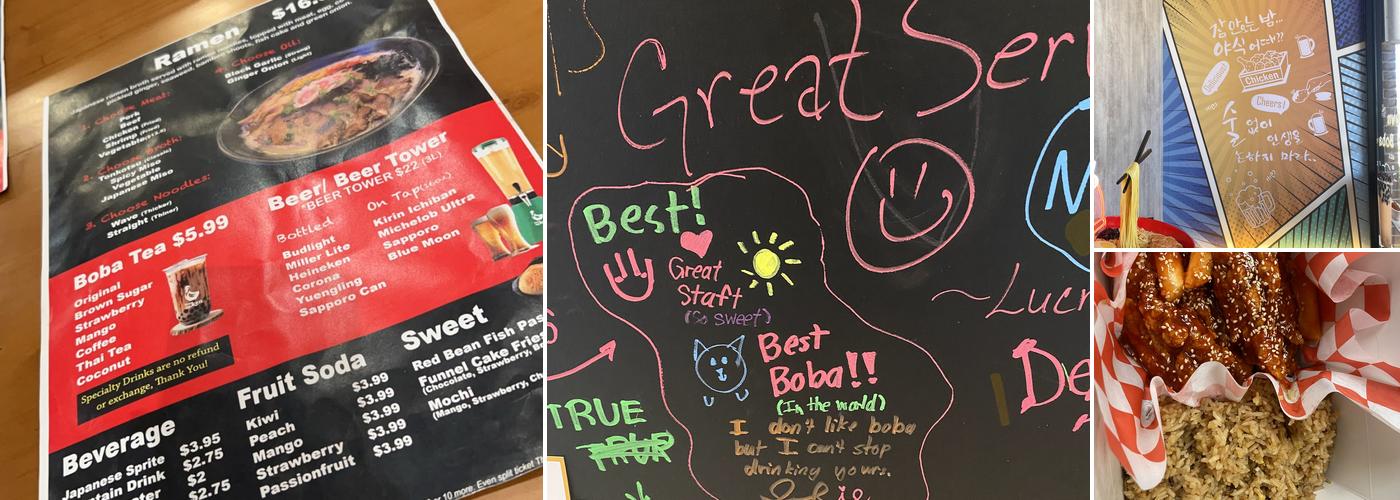 Ramen
Japanese ramen broth served with ramen noodles, topped with meat, egg,
pickled ginger, seaweed, bamboo shoots, fish cake and green onion.
1. Choose Meat:
Pork
Beef
Chicken (Fried)
Shrimp (Fried)
Vegetable
2. Choose Broth:
Tonkotsu
Spicy Miso
Vegetable
Japanese Miso
3. Choose Noodles:
Wave (Thicker)
Straight (Thiner)
4. Choose Oil:
Black Garlic (Strong)
Ginger Onion (Light)
Boba Tea $5.99
Original
Brown Sugar
Strawberry
Mango
Coffee
Thai Tea
Coconut
Specialty Drinks are no refund
or exchange, Thank You!
Beer/ Beer Tower
*BEER TOWER $22 (3L)
Bottled
Budlight
Miller Lite
Heineken
Corona
Yuengling
Sapporo Can
On Tap
Kirin Ichiban
Michelob Ultra
Sapporo
Blue Moon
Beverage
Japanese Sprite $3.95
$2.75
$2
$2.75
Fruit Soda
Kiwi $3.99
Peach $3.99
Mango $3.99
Strawberry $3.99
Passionfruit $3.99
Sweet
Red Bean Fish
Funnel Cake
(Chocolate, Strawberry,
Mochi
(Mango, Strawberry,
or 10 more. Even split ticket
Great
Best!
Great
Staff
(So sweet)
Best
Boba!!
(In the world)
I don't like boba
but I can't stop
drinking yours.
TRUE
잠 안오는 밤...
야식 어때??
Delicious
Chicken
Cheers!
술 없이
인생을
논하지 마라..